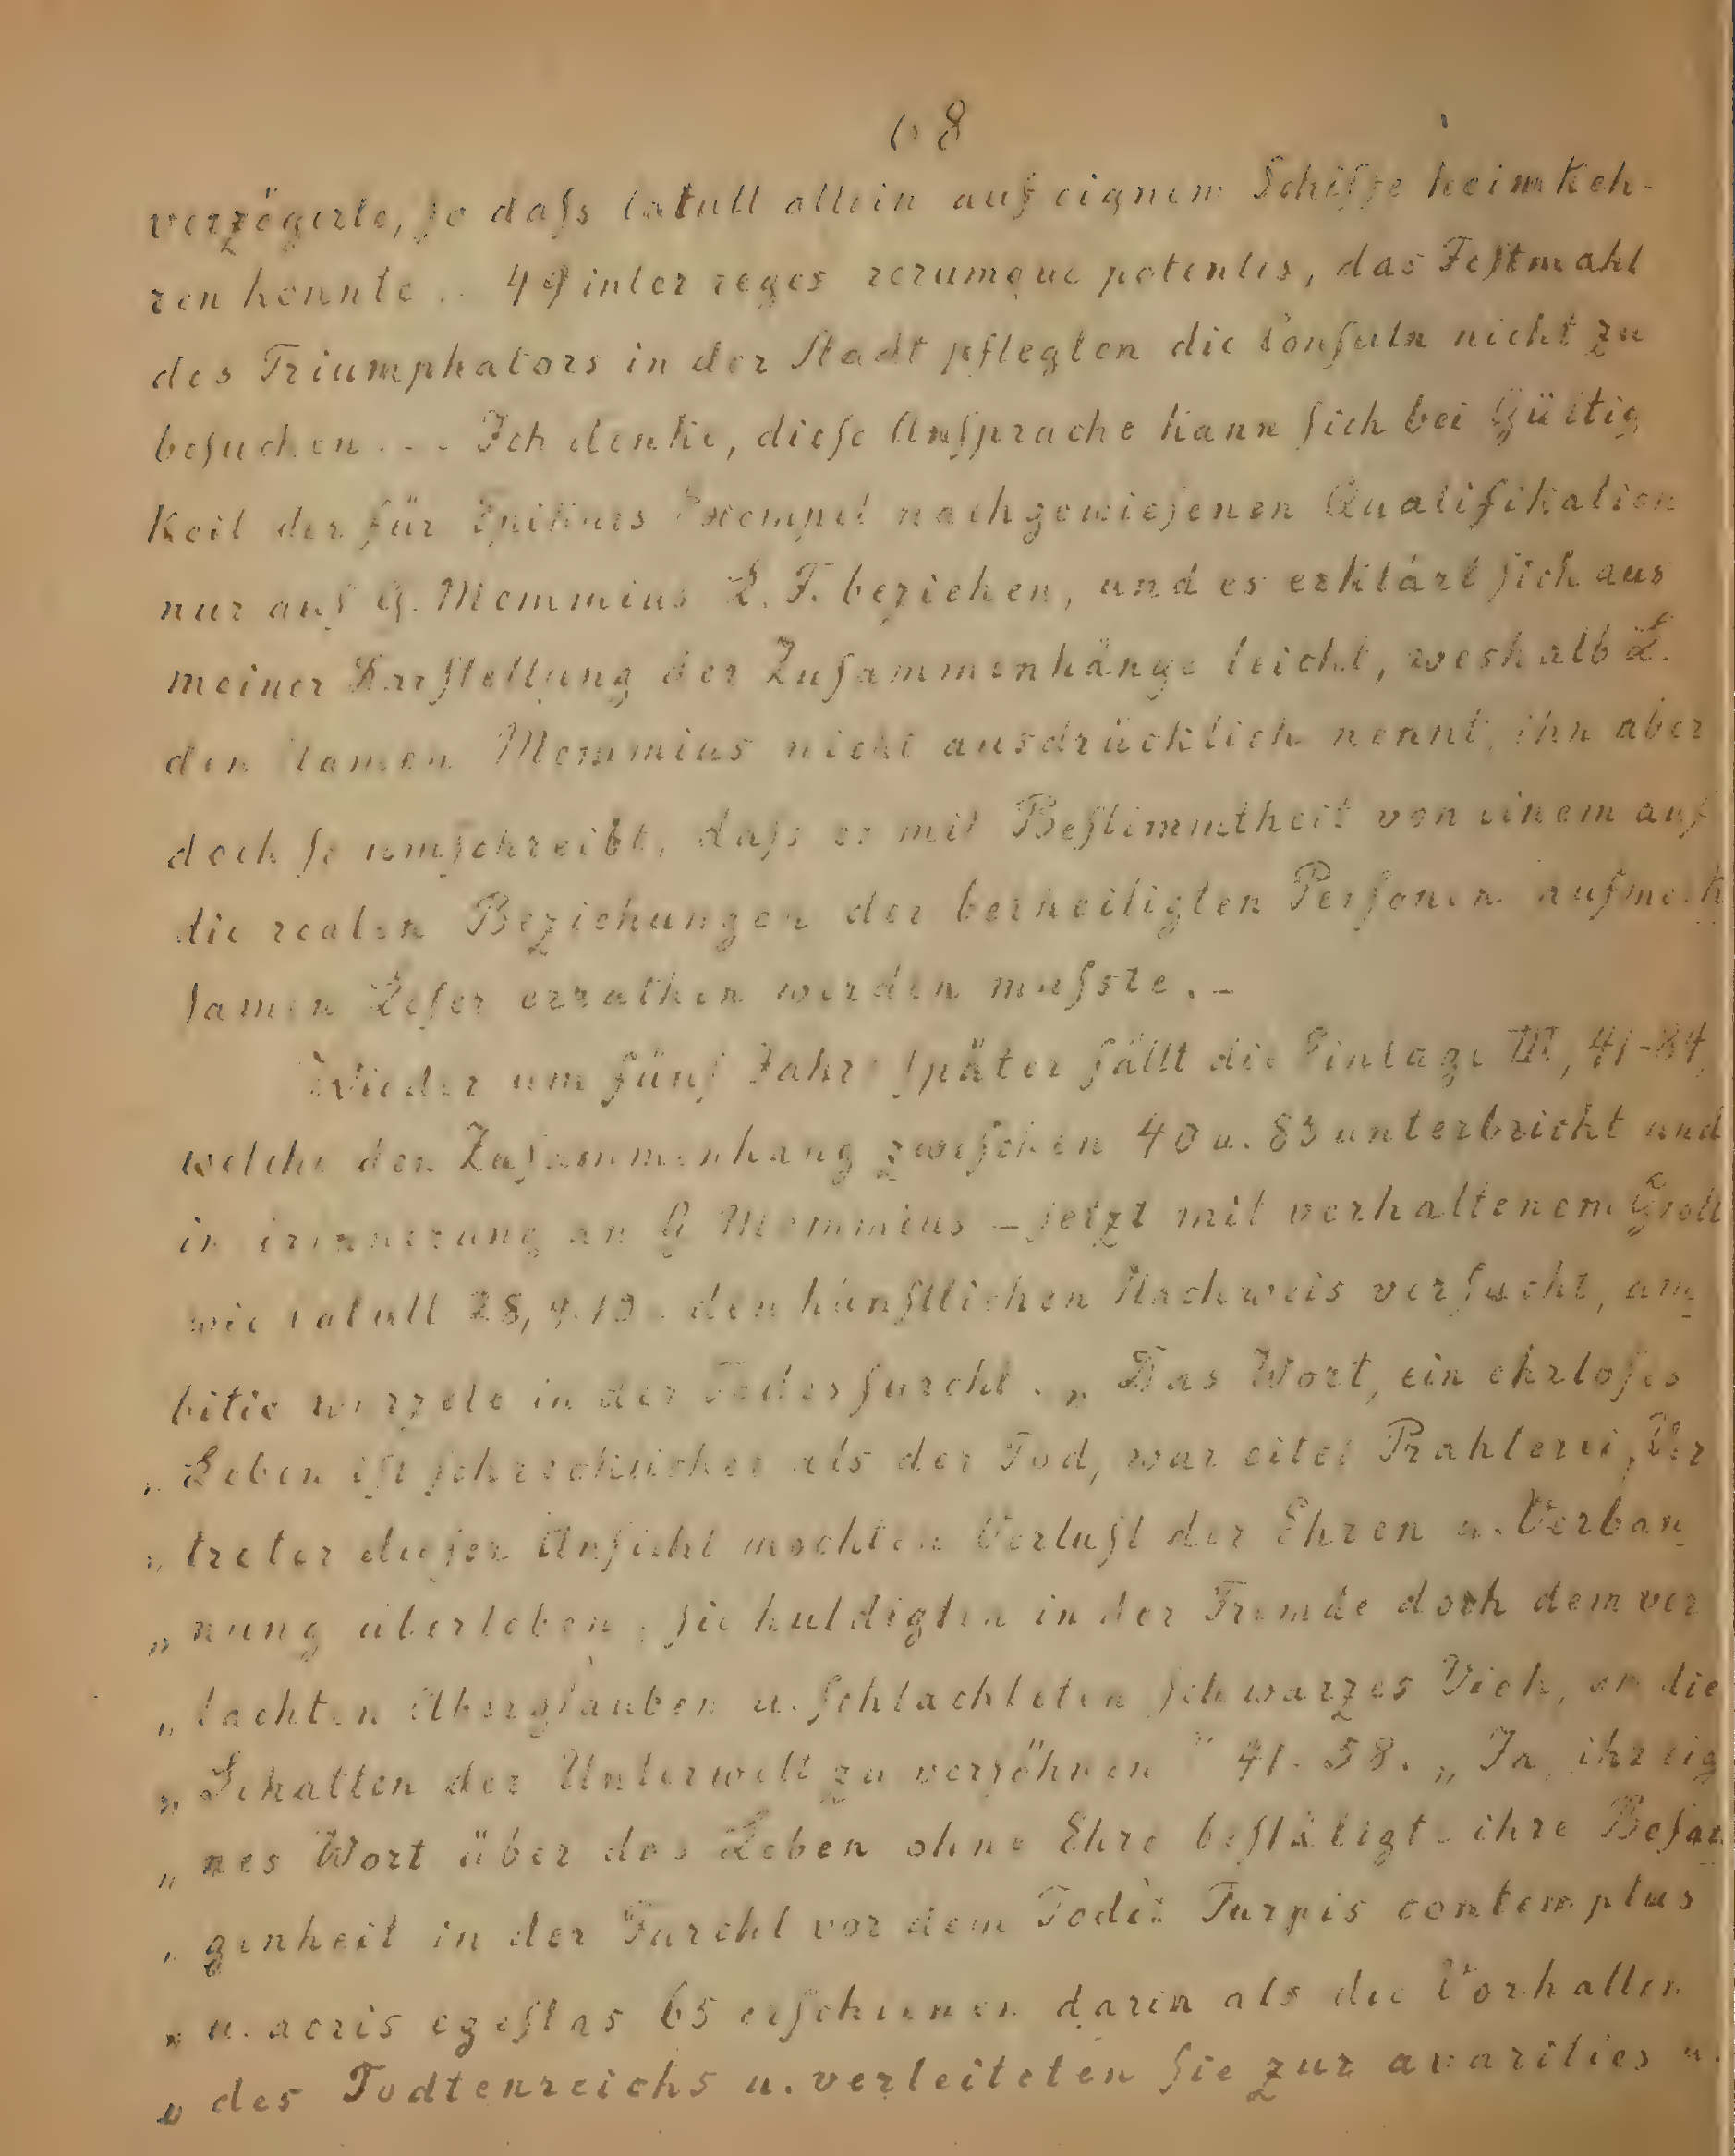 68
verzögerte, so daſs Catull allein auf eignem Schiffe heimkeh-
ren konnte .. 49 inter reges rerumque potentis, das Feſtmahl
des Triumphators in der Stadt pflegten die Conſuln nicht zu
beſuchen ... Ich denke, dieſe Anſprache kann ſich bei Gültig
keit der für Epikurs Exempel nachgewieſenen Qualifikation
nur auf G. Memmius L. F. beziehen, und es erklärt ſich aus
meiner Darſtellung der Zuſammenhänge leicht, weshalb L.
den Namen Memmius nicht ausdrücklich nennt, ihn aber
doch ſo umſchreibt, daſs er mit Beſtimmtheit von einem auf
die realen Beziehungen der betheiligten Perſonen aufmerk
ſamen Leſer errathen werden muſste. -
Wieder um fünf Jahre ſpäter fällt die Einlage III, 41-84,
welche den Zuſammenhang zwiſchen 40 u. 85 unterbricht und
in Erinnerung an G Memmius - jetzt mit verhaltenem Groll
wie Catull 28, 9.10 - den künſtlichen Nachweis verſucht, am
bitio wurzele in der Todesfurcht. „Das Wort, ein ehrloſes
„Leben iſt ſchrecklicher als der Tod, war eitel Prahlerei, Ver
„treter dieſer Anſicht mochten Verluſt der Ehren u. Verban
„nung überleben, ſie huldigten in der Fremde doch dem ver
„lachten Aberglauben u. ſchlachteten ſchwarzes Vieh, um die
„Schatten der Unterwelt zu verſöhnen" 41-58. „Ja, ihr eig
„nes Wort über das Leben ohne Ehre beſtätigte ihre Befan
„genheit in der Furcht vor dem Tode: Turpis contemptus
„u. acris egeſtas 65 erſchienen darin als die Vorhallen
„des Todtenreichs u. verleiteten ſie zur avarities u.